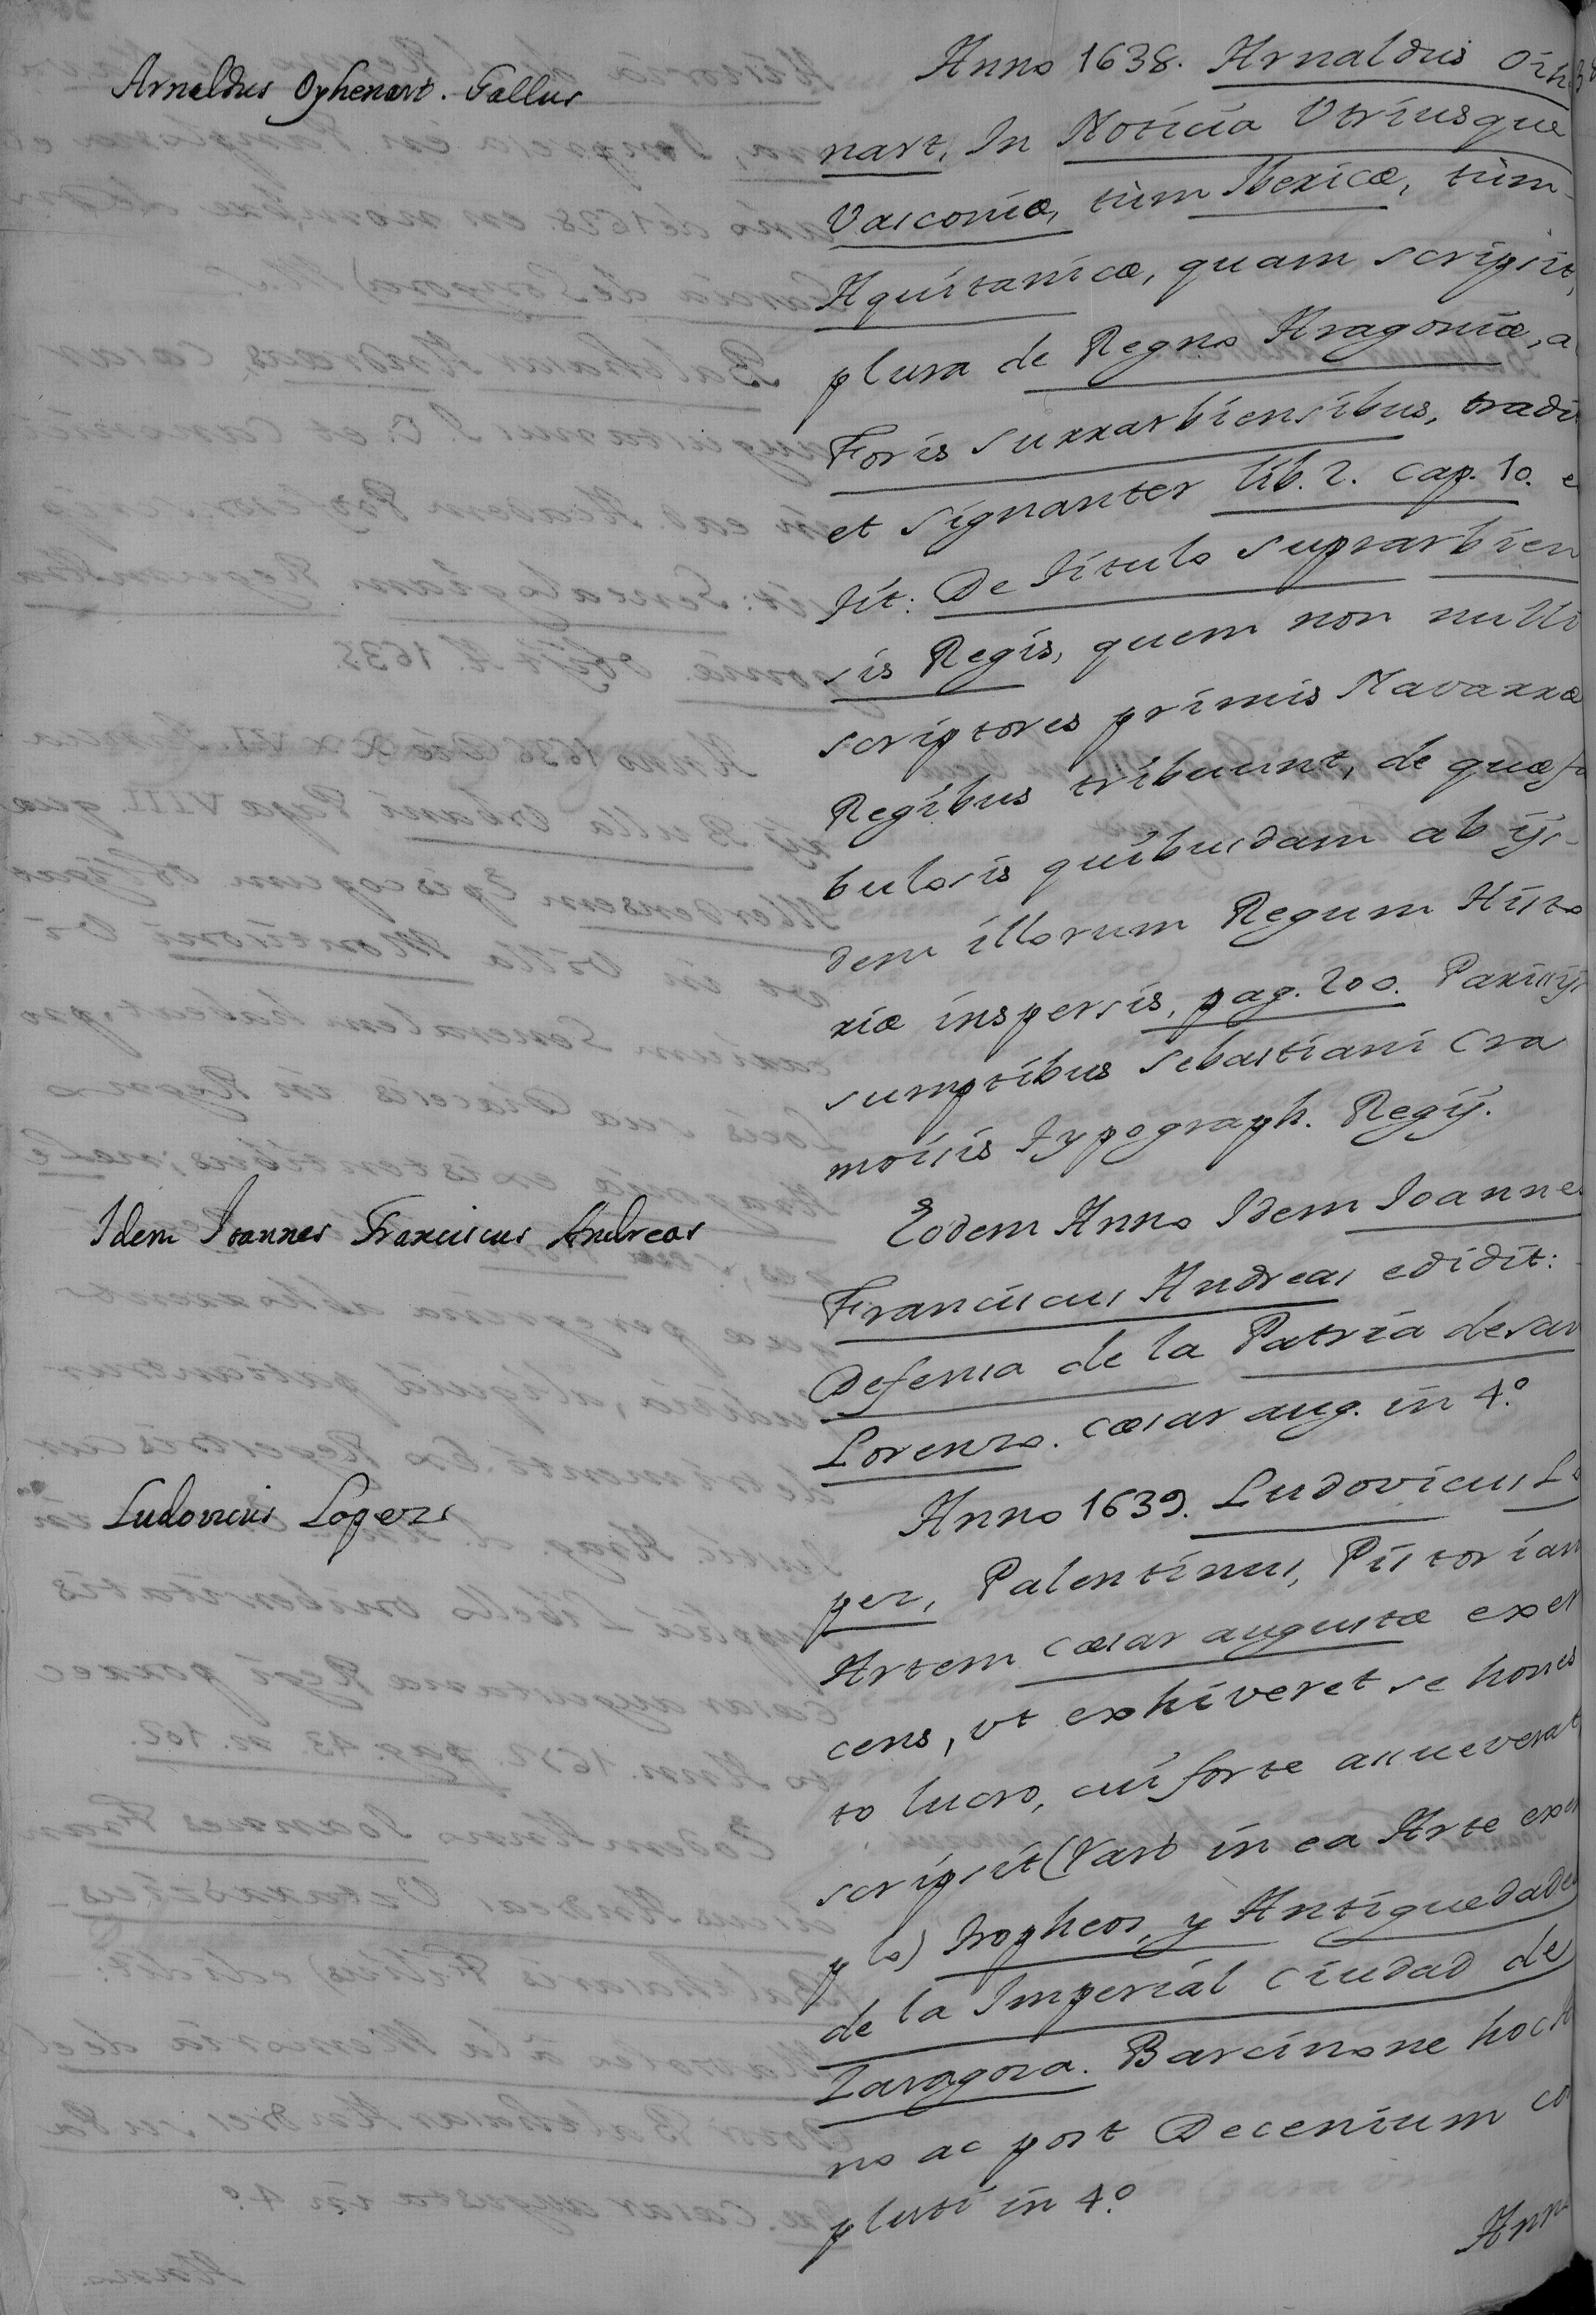 Arnaldus Oyhenart. Gallus
Anno 1638. Arnaldus Oihe
nart, In Noticia Vtriusque
Vasconiæ, tùm Ibericæ, tùm
Aquitanicæ, quam scripsit,
plura de Regno Aragoniæ, a
Foris suprarbiensibus, tradi
et signanter lib. 2. cap. 10. e
tit: De titulo suprarbien
sis Regis, quem non nulli
scriptores primis Navarræ
Regibus tribuunt, de quæ fa
bulosis quibusdam ab ijs-
dem illorum Regum Histo
riæ inspersis, pag. 200. Parisijs
sumptibus Sebastiani Cra
moisis Typograph. Regij.
Idem Ioannes Franciscus Andreas
Eodem Anno Idem Ioannes
Franciscus Andreas edidit:
Defensa de la Patria de san
Lorenzo. Cæsar aug. in 4.º
Ludovicus Lopezs
Anno 1639. Ludovicus Lo
pez, Palentinus, Pistoriam
Artem Cæsar augustæ exer
cens, vt exhiveret se hones
to lucro, cui forte assueverat
scripsit (raro in ea Arte exem
plo) Tropheos, y Antiguedades
de la Imperial Ciudad de
Zaragoza. Barcinone hoc An
no ac post Decenium co
pluti in 4.º
Ann